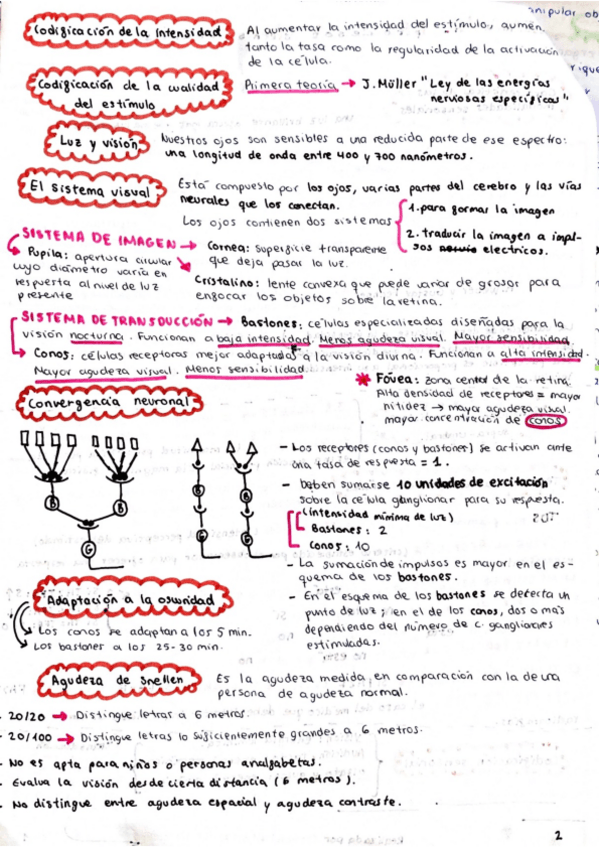 Codificación de la Intensidad
Al aumentar la intensidad del estímulo, aumen
tanto la tasa como la regularidad de la activación
de la célula.
Codificación de la cualidad
del estímulo
Primera teoría → J. Müller "Ley de las energías
nerviosas específicas"
Luz y visión
Nuestros ojos son sensibles a una reducida parte de ese espectro:
una longitud de onda entre 400 y 700 nanómetros.
El sistema visual
Está compuesto por los ojos, varias partes del cerebro y las vías
neurales que los conectan.
Los ojos contienen dos sistemas
1. para formar la imagen
2. traducir la imagen a impul-
sos nervio electricos.
SISTEMA DE IMAGEN → Cornea: superficie transparente
que deja pasar la luz.
Pupila: apertura circular
cuyo diámetro varía en
respuesta al nivel de luz
presente
Cristalino: lente convexa que puede variar de grosor para
enfocar los objetos sobre la retina.
SISTEMA DE TRANSDUCCIÓN → Bastones: células especializadas diseñadas para la
visión nocturna. Funcionan a baja intensidad. Menos agudeza visual. Mayor sensibilidad.
Conos: células receptoras mejor adaptadas a la visión divina. Funcionan a alta intensidad.
Mayor agudeza visual. Menos sensibilidad.
* Fóvea: zona center de la retina.
Alta densidad de receptores = mayor
nitidez → mayor agudeza visual.
mayor concentración de conos
Convergencia neuronal
B
B
B
B
B
G
G
G
- Los receptores (conos y bastones) se activan ante
una tasa de respuesta = 1.
- Deben sumarse 10 unidades de excitación
sobre la célula ganglionar para su respuesta.
(intensidad mínima de luz)
Bastones: 2
Conos: 10
- La sumación de impulsos es mayor en el es-
quema de los bastones.
- En el esquema de los bastones se detecta un
punto de luz; en el de los conos, dos o más
dependiendo del número de c. gangliares
estimuladas.
Adaptación a la oscuridad
Los conos se adaptan a los 5 min.
Los bastones a los 25-30 min.
Agudeza de Snellen
Es la agudeza medida en comparación con la de una
persona de agudeza normal.
- 20/20 → Distingue letras a 6 metros.
- 20/100 → Distingue letras lo suficientemente grandes a 6 metros.
- No es apta para niños o personas analfabetas.
- Evalua la visión desde cierta distancia (6 metros).
- No distingue entre agudeza espacial y agudeza contraste.
2